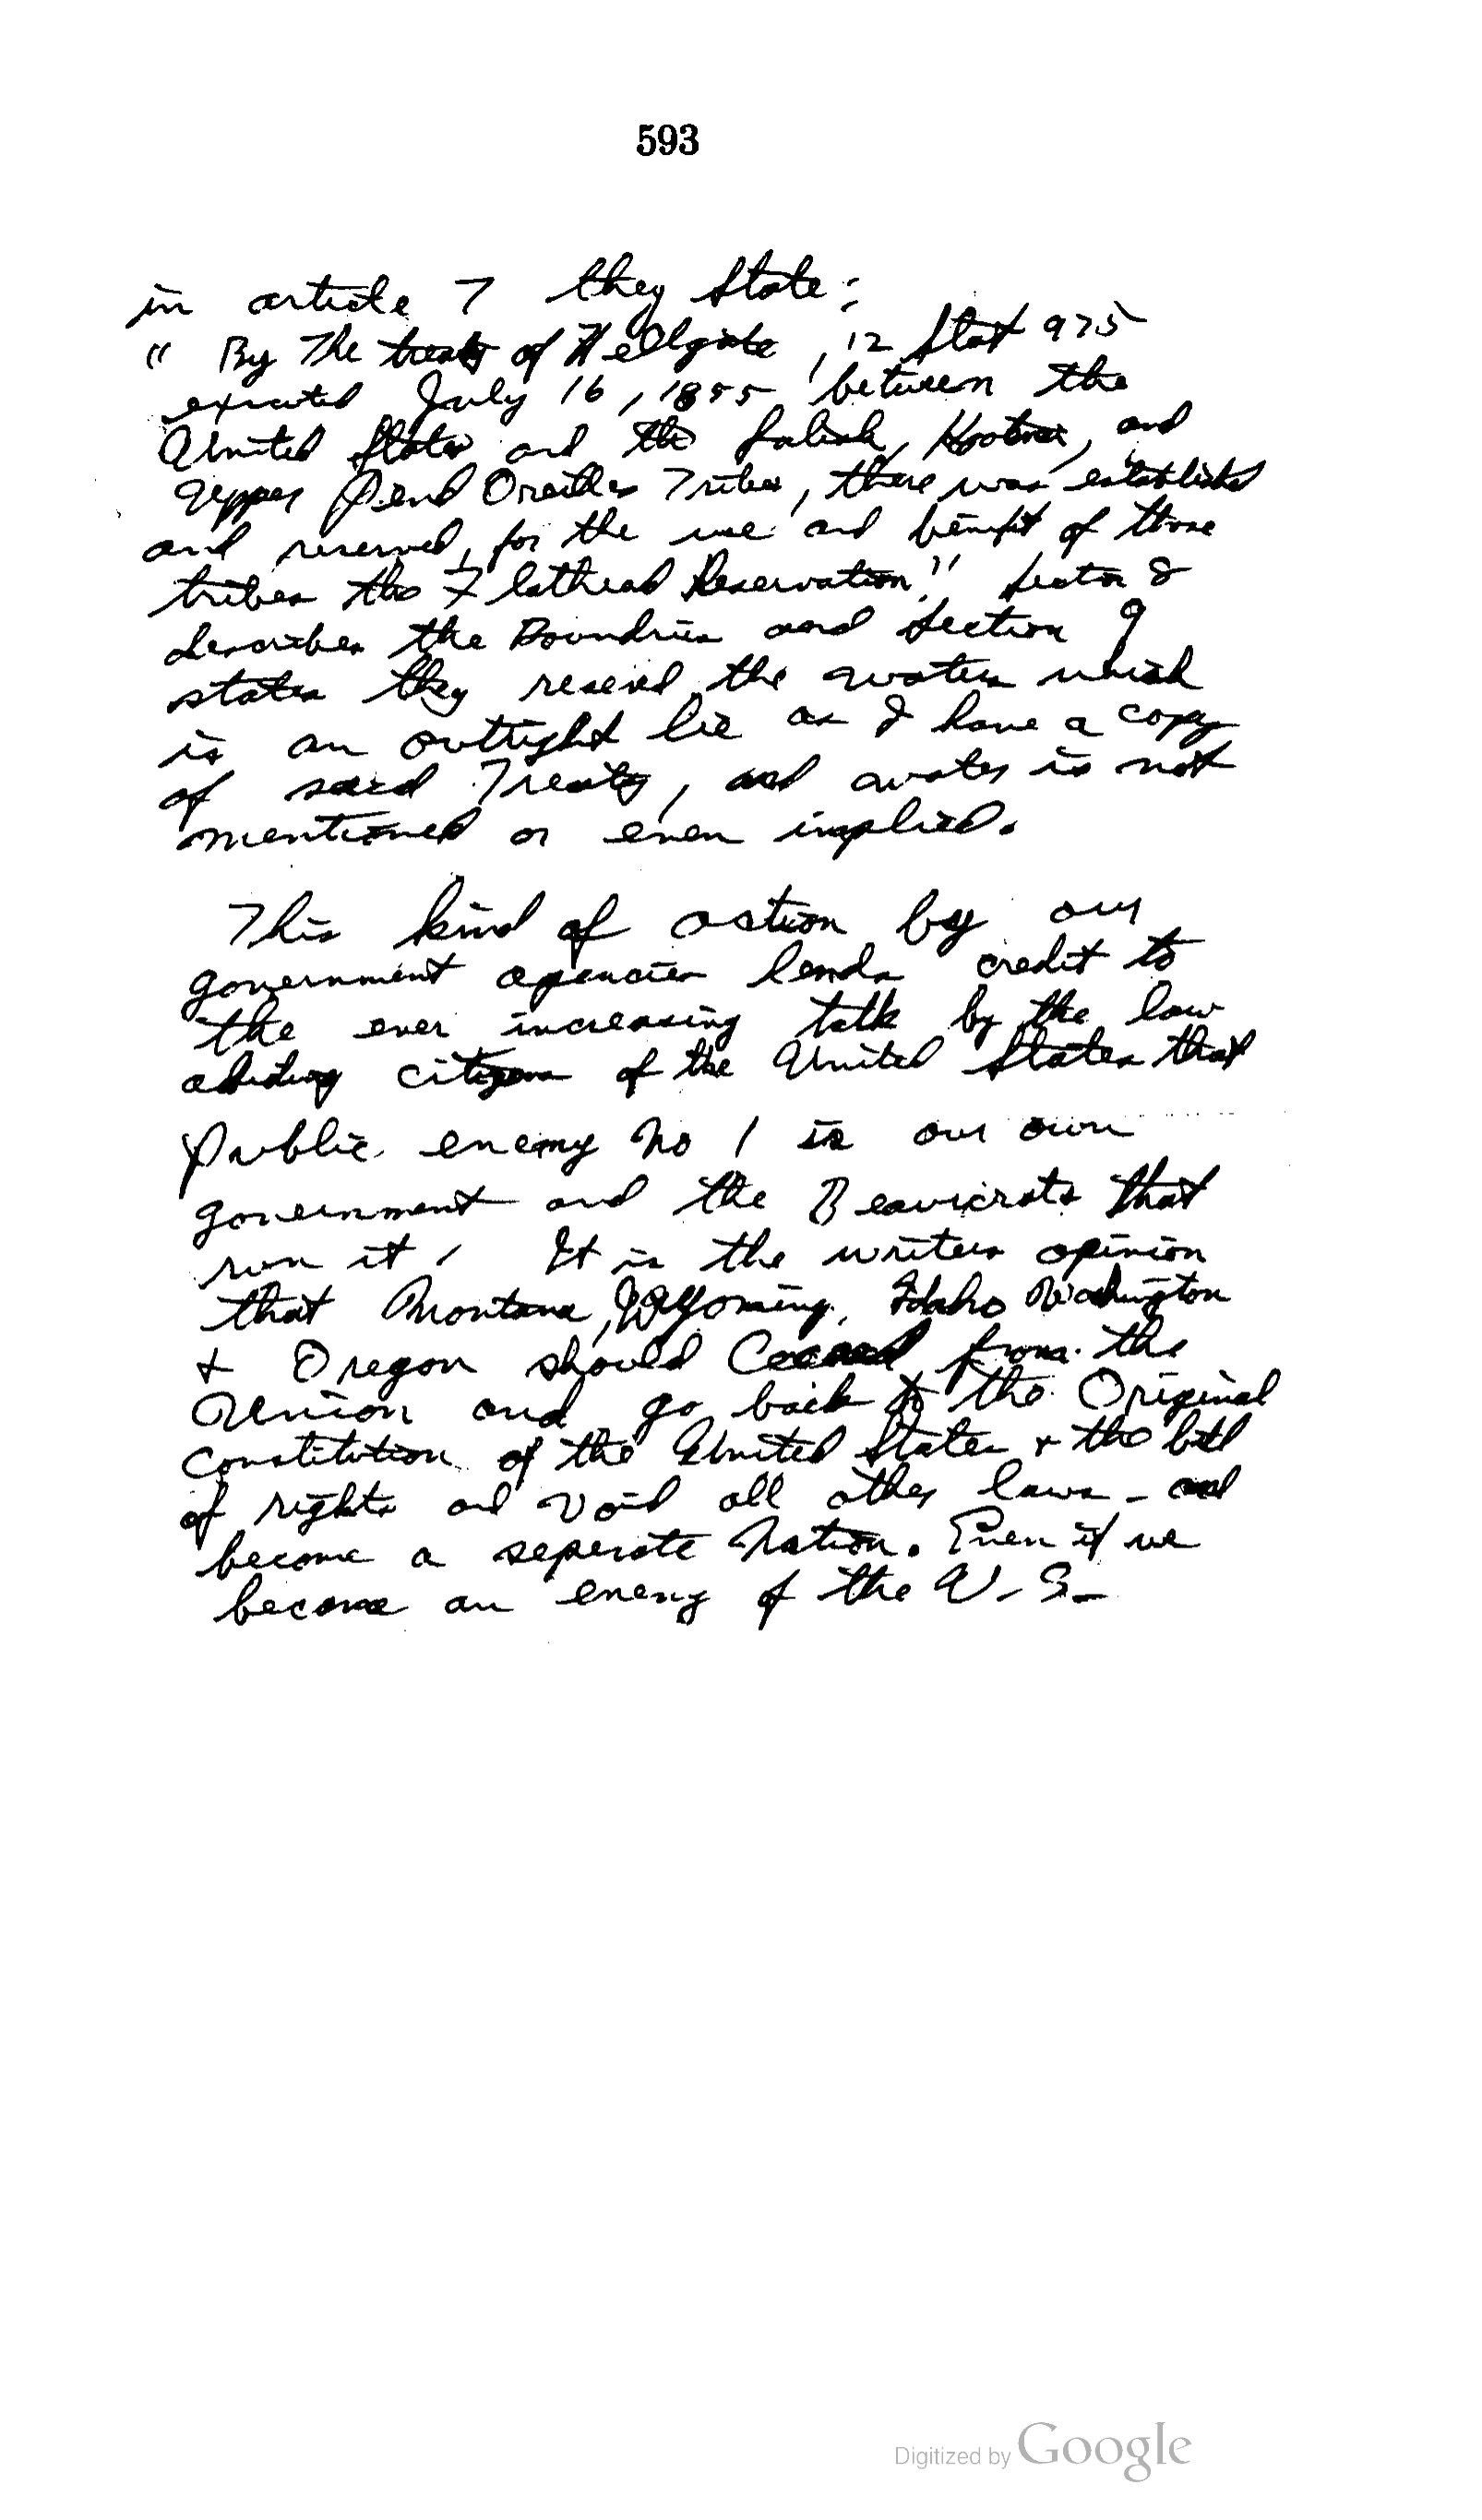 593
in article 7 they state:
" By The treaty of Hellgate, 12 Stat 975
executed July 16, 1855 between the
United States and the Salish, Kootnai, and
Upper Pend Oreilles Tribes, there was established
and reserved, for the use and benifit of those
tribes the Flathead Reservation." Section 8
describes the Boundries and section 9
states they reserved the waters which
is an outtight lie as I have a copy
of said Treaty, and water is not
mentioned or even implied.
This kind of action by our
government agencies lends credit to
the ever increasing talk by the law
abiding citizens of the United States that
public enemy No 1 is our own
government and the Beauricrats that
run it, It is the writers opinion
that Montana, Wyoming, Idaho Washington
+ Oregon should from the
Union and go back to the Original
constitution of the United States + the bill
of rights and void all other laws - and
become a seperate Nation. Even if we
become an enemy of the U-S-
Digitized by Google